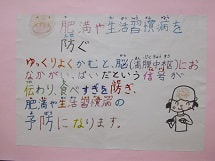 肥満や生活習慣病を
防ぐ
ゆっくりよくかむと、脳(満腹中枢)に
おなかがいっぱいだという信号が
伝わり、食べすぎを防ぎ、
肥満や生活習慣病の
予防になります。